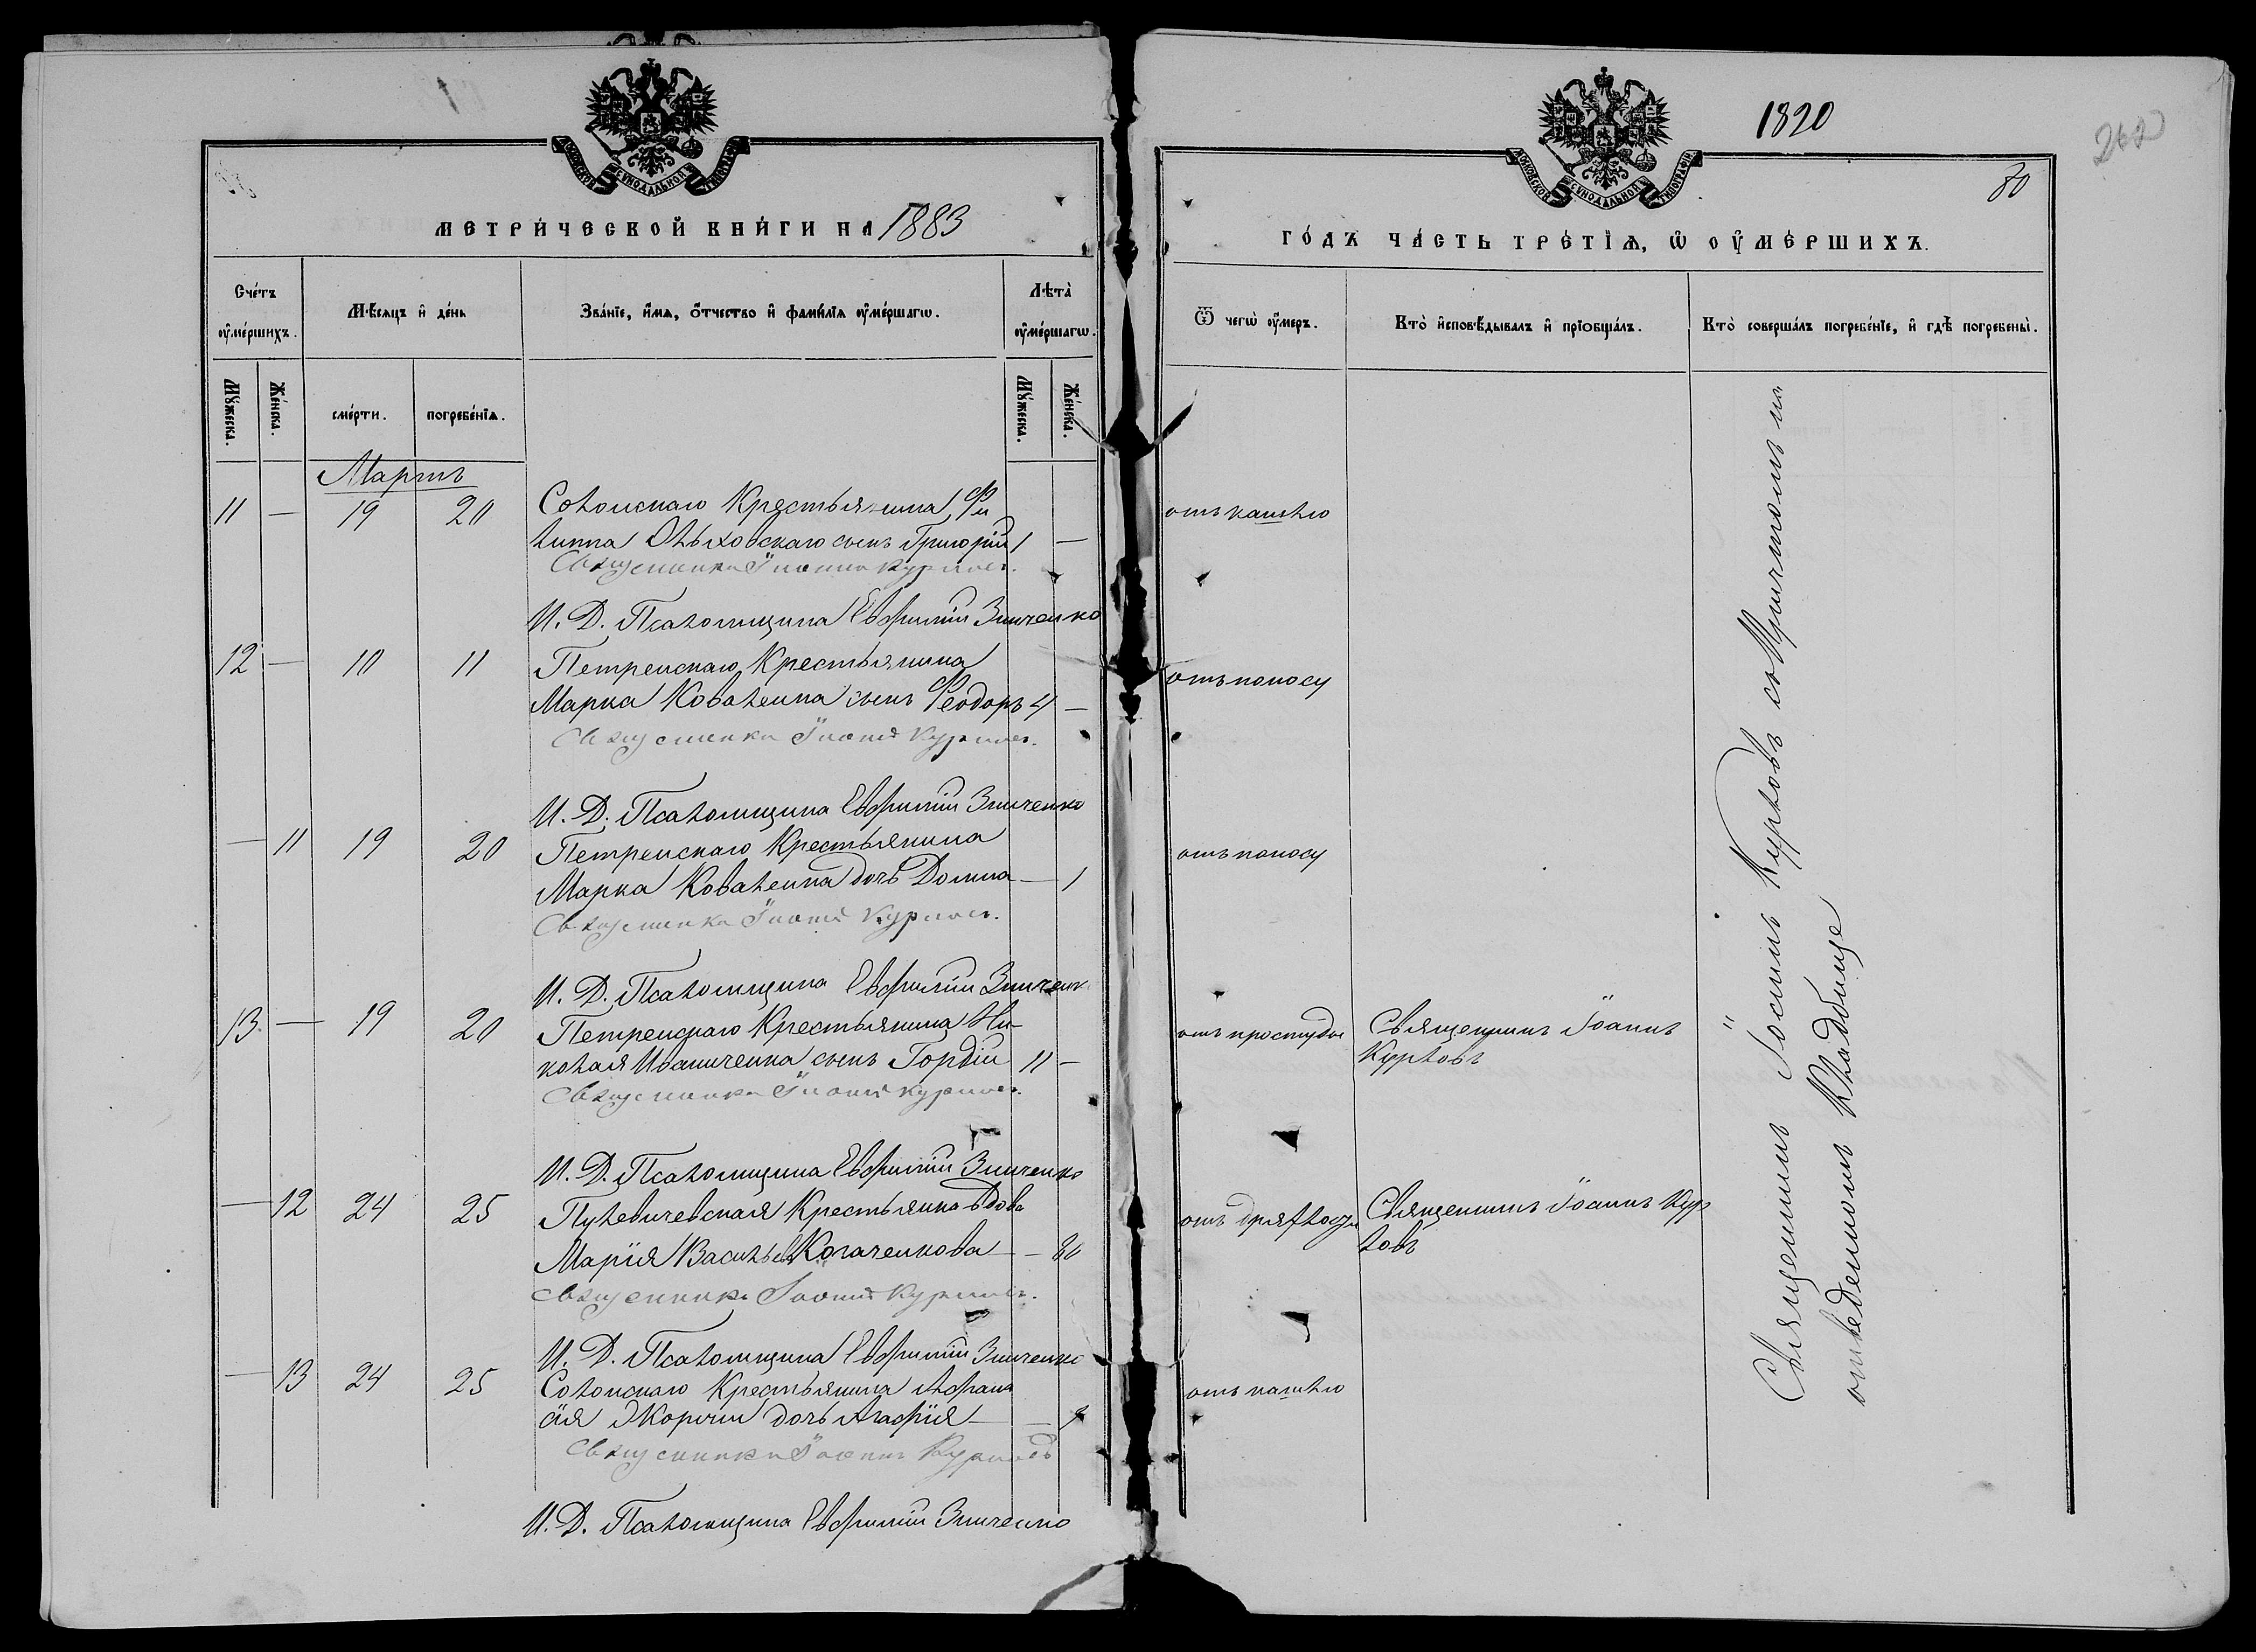 МОСКОВСКОЙ СѴНОДАЛЬНОЙ ТИПОГРАФІИ
МЕТРИ́ЧЕСКОЙ КНИ́ГИ НА 1883
Сче́тъ ᲂумершихъ.
Мѣ́сяцъ и҆ де́нь
Зва́нїе, и҆́мѧ, ѻ҆́тчество и҆ фами́лїѧ ᲂу҆ме́ршагѡ.
Лѣта̀ ᲂу҆ме́ршагѡ.
Мꙋ́жеска.
Же́нска.
сме́рти.
погребе́нїѧ.
Мꙋ́жеска.
Же́нска.
Мартъ
11 — 19 20 Соколскаго Крестьянина Фи
липпа Ольховскаго сынъ Григорій 1 —
Священникъ Іоаннъ Курловъ.
И. Д. Псаломщика Евфимій Зинченко
12 — 10 11 Петренскаго Крестьянина
Марка Коваленка сынъ Феодоръ 4 —
Священникъ Іоаннъ Курловъ.
И. Д. Псаломщика Евфимій Зинченко
— 11 19 20 Петренскаго Крестьянина
Марка Коваленка дочь Домна — 1
Священникъ Іоаннъ Курловъ.
И. Д. Псаломщика Евфимій Зинченк
13. — 19 20 Петренскаго Крестьянина Ни-
колая Иваниченка сынъ Гордій 11 —
Священникъ Іоаннъ Курловъ.
И. Д. Псаломщика Евфимій Зинченко
— 12 24 25 Крестьянка вдова
Марія Васильева — — 80
Священникъ Іоаннъ Курловъ.
И. Д. Псаломщика Евфимій Зинченко
— 13 24 25 Соколскаго Крестьянина Афана
сія дочь Агафія — —
Священникъ Іоаннъ Курловъ
И. Д. Псаломщика Евфимій Зинченко
1820
262
80
МОСКОВСКОЙ СѴНОДАЛЬНОЙ ТИПОГРАФІИ
ГО́ДЪ ЧА́СТЬ ТРЕ́ТЇѦ, Ѡ҆ ОУ҆МЕ́РШИХЪ.
Ѿ чегѡ̀ ᲂу҆́меръ.
Кто̀ и҆сповѣ́дывалъ и҆ прїѡбща́лъ.
Кто̀ соверша́лъ погребе́нїе, и҆ гдѣ̀ погребены̀.
отъ кашлю
отъ поносу
отъ поносу
отъ простуды Священникъ Іоаннъ
Курловъ
отъ дряхлости Священникъ Іоаннъ Кур
ловъ
отъ кашлю
Священникъ Іоаннъ Курловъ со причтомъ на
отведенномъ Кладбище